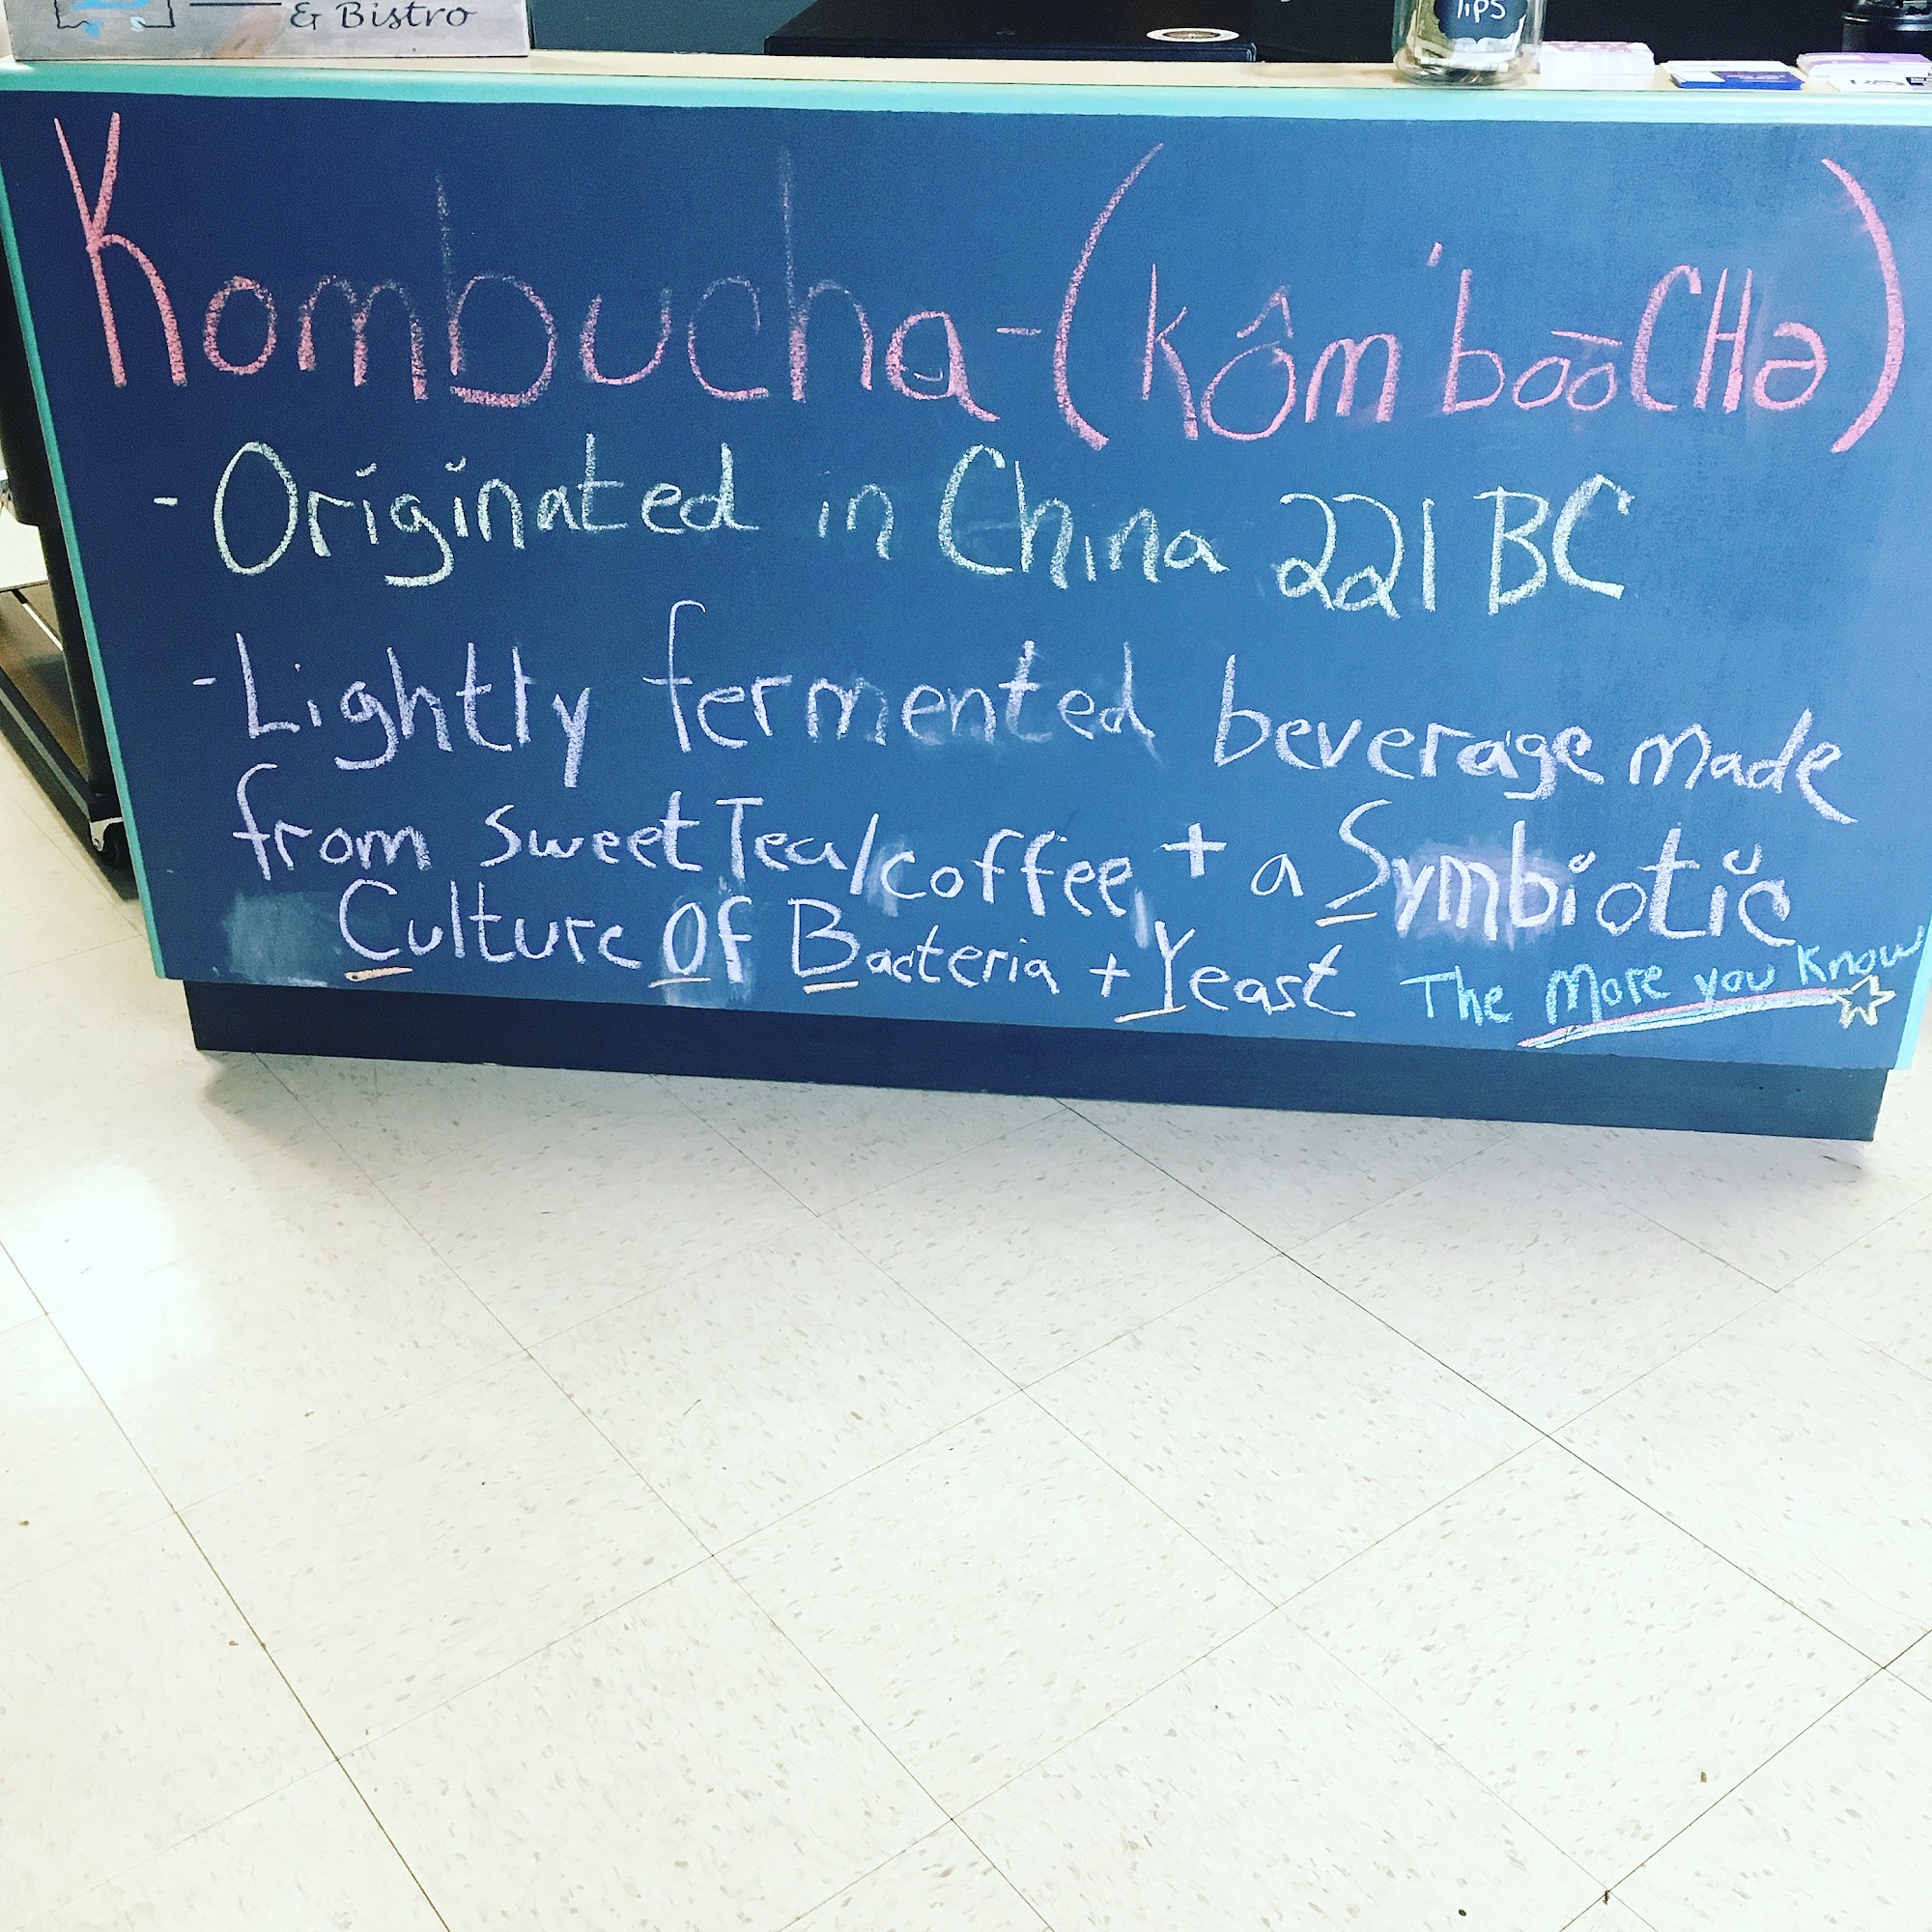 & Bistro
Tips
Kombucha - (kôm'bo͞oCHə)
- Originated in China 221 BC
- Lightly fermented beverage made
from sweet Tea/coffee + a Symbiotic
Culture Of Bacteria + Yeast
The More you Know